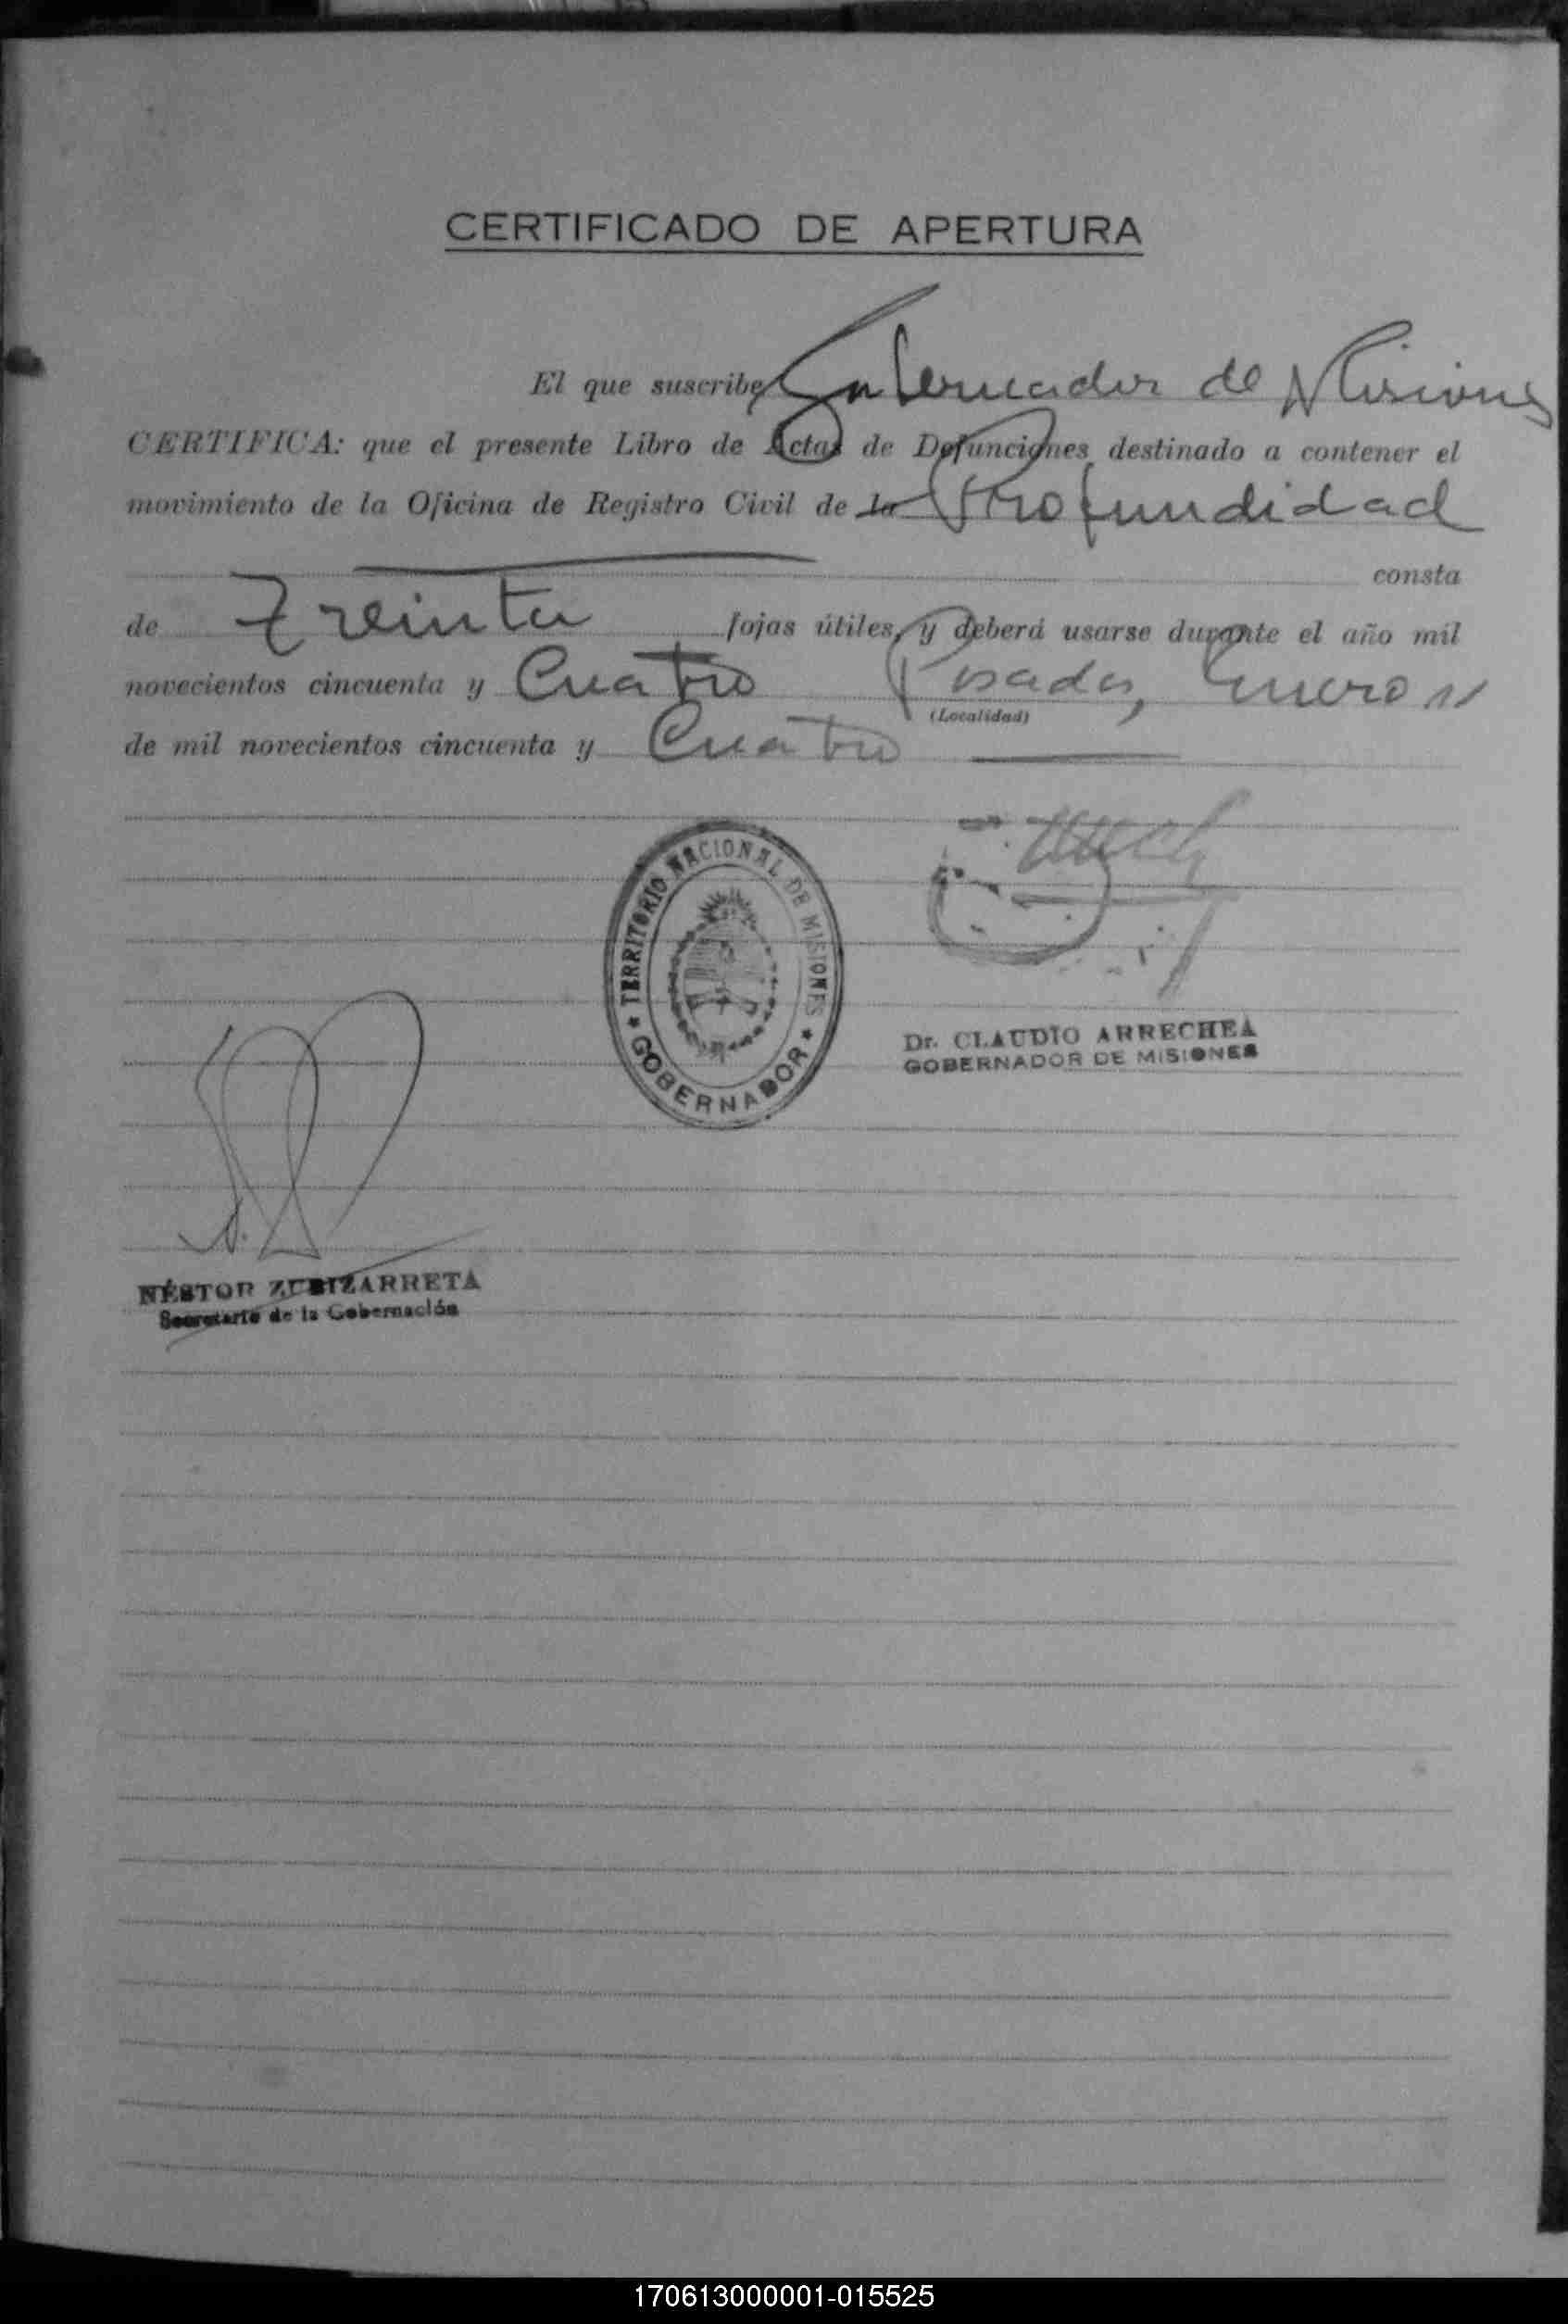 CERTIFICADO DE APERTURA
El que suscribe Gobernador de Misiones
CERTIFICA: que el presente Libro de Actas de Defunciones destinado a contener el
movimiento de la Oficina de Registro Civil de la Profundidad
consta
de Treinta fojas útiles, y deberá usarse durante el año mil
novecientos cincuenta y Cuatro Posadas, Enero 11
(Localidad)
de mil novecientos cincuenta y Cuatro
TERRITORIO NACIONAL DE MISIONES
GOBERNADOR
Dr. CLAUDIO ARRECHEA
GOBERNADOR DE MISIONES
NÉSTOR ZUBIZARRETA
Secretario de la Gobernación
170613000001-015525